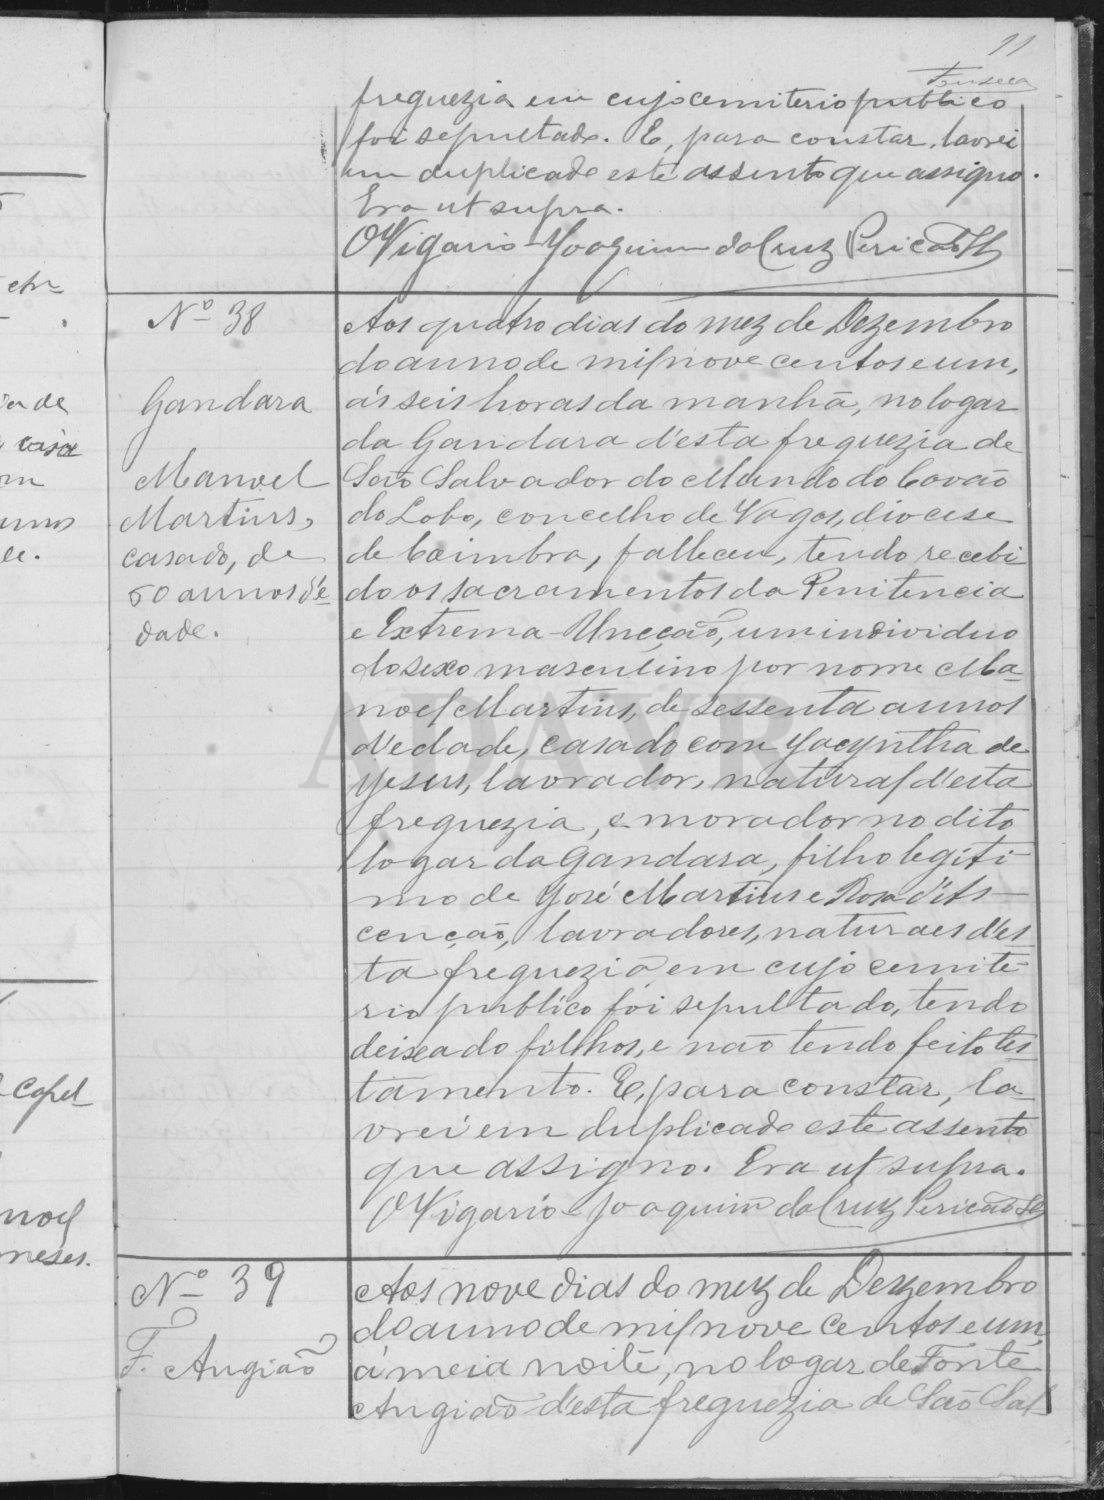 11
Fonseca
freguezia em cujo cemiterio publico
foi sepultado. E, para constar, lavrei
em duplicado este assento que assigno.
Era ut supra.
O Vigario Joaquim da Cruz Pericão
Nº 38
Gandara
Manoel
Martins,
casado, de
60 annos d'e
dade.
Aos quatro dias do mez de Dezembro
do anno de mil nove centos e um,
ás seis horas da manhã, no logar
da Gandara d'esta freguezia de
São Salvador do Mundo do Covão
do Lobo, concelho de Vagos, diocese
de Coimbra, falleceu, tendo recebi
do os sacramentos da Penitencia
e Extrema-Uncção, um individuo
do sexo masculino por nome Ma-
noel Martins, de sessenta annos
d'edade, casado com Jacyntha de
Jesus, lavrador, natural d'esta
freguezia, e morador no dito
logar da Gandara, filho legiti-
mo de José Martins e Rosa d'As-
cenção, lavradores, naturaes d'es-
ta freguezia em cujo cemite-
rio publico foi sepultado, tendo
deixado filhos, e não tendo feito tes-
tamento. E, para constar, la-
vrei em duplicado este assento
que assigno. Era ut supra.
O Vigario Joaquim da Cruz Pericão
Nº 39
F. Angião
Aos nove dias do mez de Dezembro
do anno de mil nove centos e um,
á meia noite, no logar de Fonte
Angião d'esta freguezia de São Sal-
ADAVR
chr
casa
Capel-
noel
meses.